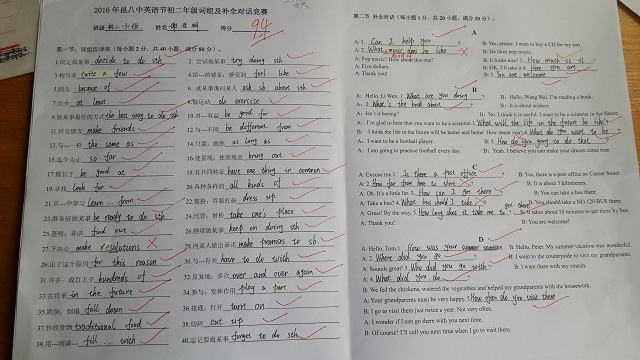 2016 年昆八中英语节初二年级词组及补全对话竞赛
得分 94
第一节：词组汉译英（每小题 2 分，共 40 小题，满分 80 分）。
1.决定做某事 decide to do sth 2. 尝试做某事 try doing sth
3.相当多 quite a few 4. 给…的感觉；感受到 feel like
5.因为 because of 6. 就某事询问某人 ask sb about sth
7.至少 at least do exercise
9.做某事最好的方式 the best way to do sth 10.对…有益 be good for
11.结交朋友 make friends 12.与…不同 be different from
13.与…一样 the same as 14.只要；既然 as long as
15.迄今为止 so far 16.使显现；使表现出 bring out
17.擅长于 be good at 18.有共同特征 have one thing in common
19.寻找 look for 20.各种各样的 all kinds of
21.从…中学习 learn … from 22.装扮；乔装打扮 dress up
23.准备好做某事 be ready to do sth 24.代替；替换 take one's place
25.查明；弄清 find out 26.继续做某事 keep on doing sth
27.下决心 make resolutions 28.向某人做出承诺 make promises to sb
29.出于这个原因 for this reason 30.与…有关 have to do with
31.许多；成百上千 hundreds of 32.反复地；多次 over and over again
33.在将来 in the future 34.参与；发挥作用 play a part
35.跌倒；倒塌 fall down 36.接通；打开 turn on
37.传统食物 traditional food 38.切碎 cut up
39.用…填满… fill … with 40.忘记要做某事 forget to do sth
第二节 补全对话（共 20 小题，满分 20 分）。
A
A: 1. Can I help you ? B: Yes, please. I want to buy a CD for my son.
A: 2. What music does he like B: He likes pop music.
A: Pop music? How about this one? B: It looks nice! 3. How much is it ?
A: Five dollars. B: OK. I'll take it. 4. Here you are
A: Thank you! B: 5. You are welcome
B
A: Hello, Li Wei. 1. What are you doing ? B: Hello, Wang Wei. I'm reading a book.
A: 2. What's the book about ? B: It is about science.
A: Isn't it boring? B: No. I think it is useful. I want to be a scientist in the future.
A: I'm glad to hear that you want to be a scientist. 3. What will the life in the future be like ?
B: I think the life in the future will be better and better. How about you? 4. What do you want to be ?
A: I want to be a football player. B: 5. How do you going to do that ?
A: I am going to practice football every day. B: Yeah. I believe you can make your dream come true.
C
A: Excuse me! 1. Is there a post office ? B: Yes, there is a post office on Center Street.
A: 2. How far from here to there ? B: It is about 3 kilometers.
A: Oh. It's a little far. 3. How can I get there ? B: You can take a bus.
A: Take a bus? 4. What bus should I take ? B: You should take a NO.120 BUS there.
A: Great! By the way, 5. How long does it take me to get there ? B: It takes about 10 minutes to get there by bus.
A: Thank you! B: You are welcome!
D
A: Hello, Tom. 1. How was your summer vacation B: Hello, Peter. My summer vacation was wonderful.
A: 2. Where did you go ? B: I went to the countryside to visit my grandparents.
A: Sounds great! 3. Who did you go with ? B: I went there with my cousin.
A: 4. What did you do ?
B: We fed the chickens, watered the vegetables and helped my grandparents with the housework.
A: Your grandparents must be very happy. 5. How often do you visit them
B: I go to visit them just twice a year. Not very often.
A: I wonder if I can go there with you next time.
B: Of course! I'll call you next time when I go to visit them.